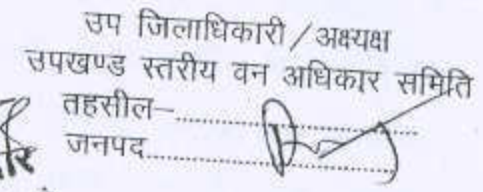 उप जिलाधिकारी / अक्ष्यक्ष
उपखण्ड स्तरीय वन अधिकार समिति
तहसील–........................................
जनपद........................................